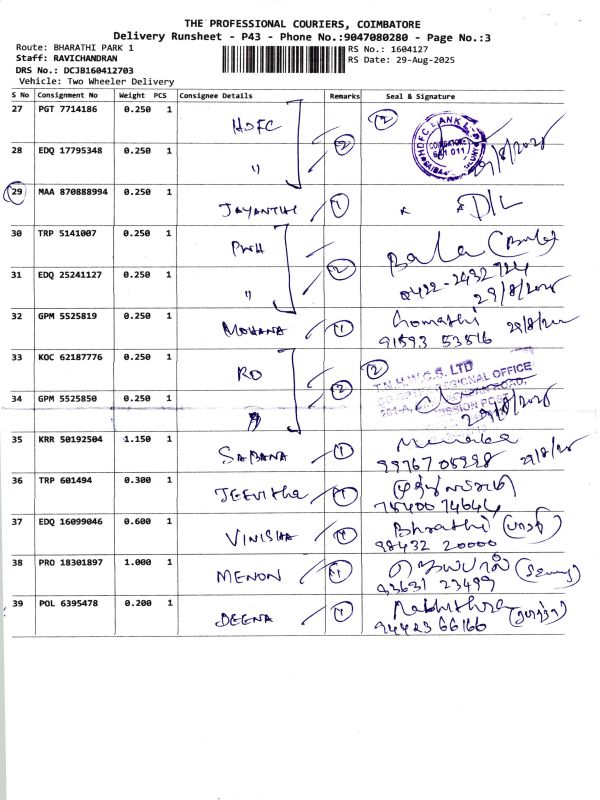 THE PROFESSIONAL COURIERS, COIMBATORE
Delivery Runsheet - P43 - Phone No.:9047080280 - Page No.:3
Route: BHARATHI PARK 1 RS No.: 1604127
Staff: RAVICHANDRAN RS Date: 29-Aug-2025
DRS No.: DCJB160412703
Vehicle: Two Wheeler Delivery
S No Consignment No Weight PCS Consignee Details Remarks Seal & Signature
27 PGT 7714186 0.250 1 HDFC 2 2
HDFC BANK
COIMBATORE
641 011
28 EDQ 17795348 0.250 1 " 29/8/2025
29 MAA 870888994 0.250 1 JAYANTHI 1 D/L
30 TRP 5141007 0.250 1 PWH 2 Bala (Bala)
0422-2432724
31 EDQ 25241127 0.250 1 " 29/8/2025
32 GPM 5525819 0.250 1 MOHANA 1 Gomathi 29/8/2025
91593 53516
33 KOC 62187776 0.250 1 RO 2 2
REGIONAL OFFICE
34 GPM 5525850 0.250 1 " 29/8/2025
35 KRR 50192504 1.150 1 SABANA 1
99767 05998 29/8/25
36 TRP 601494 0.300 1 JEEVITHA 1
75400 74644
37 EDQ 16099046 0.600 1 VINISHA 1 Bharathi
98432 20000
38 PRO 18301897 1.000 1 MENON 1
93631 23499
39 POL 6395478 0.200 1 DEENA 1
94423 66166